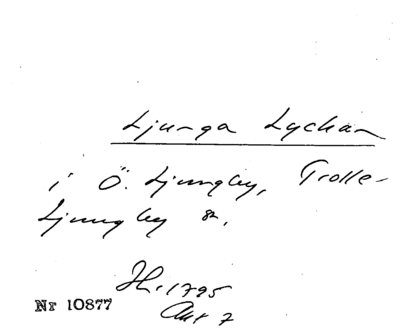 Ljunga Lyckan
i Ö. Ljungby, Trolle-
Ljungby sn.
Hr. 1795
Akt 7
Nr 10877